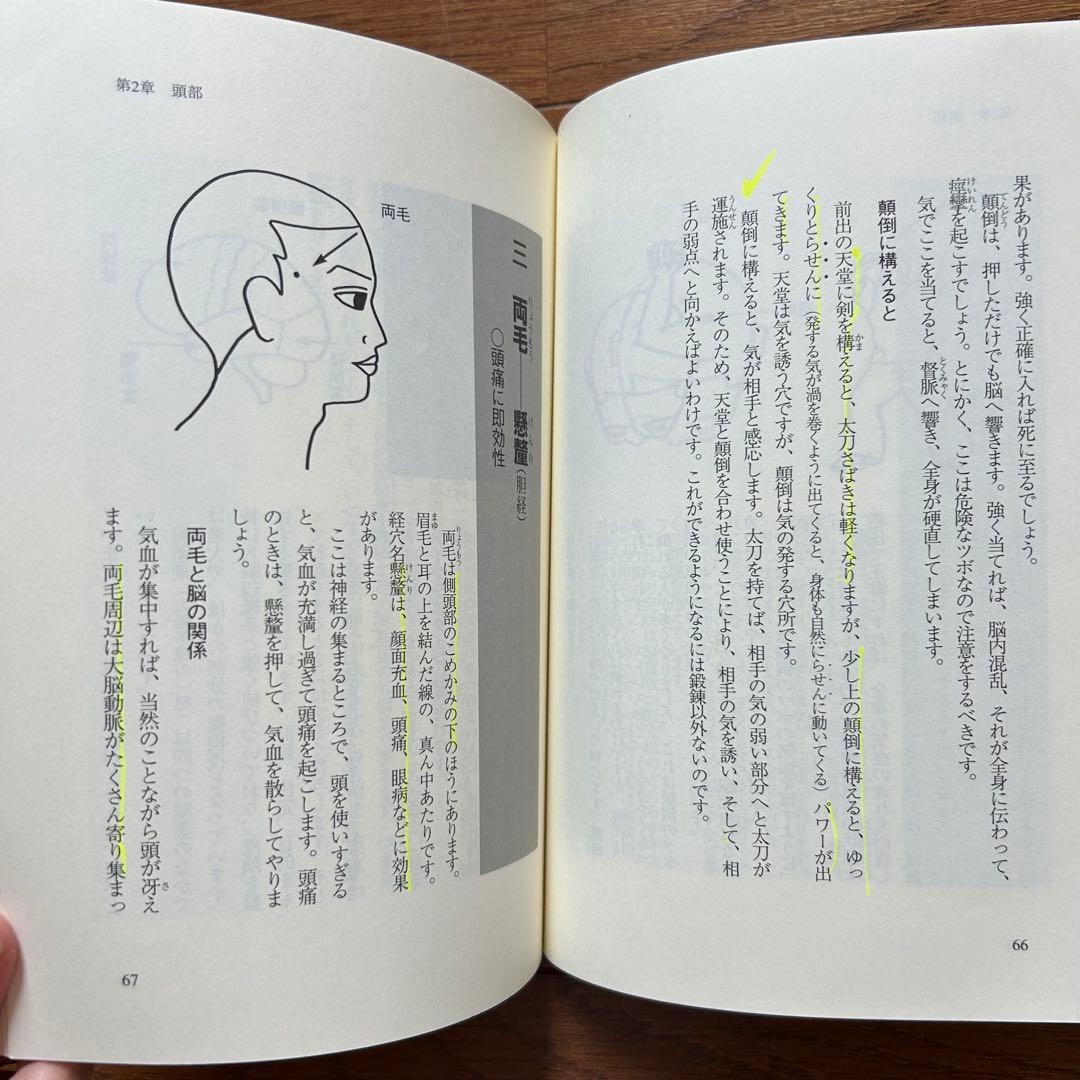 果があります。強く正確に入れば死に至るでしょう。
顛倒は、押しただけでも脳へ響きます。強く当てれば、脳内混乱、それが全身に伝わって、
痙攣を起こすでしょう。とにかく、ここは危険なツボなので注意をするべきです。
気でここを当てると、督脈へ響き、全身が硬直してしまいます。
顛倒に構えると
前出の天堂に剣を構えると、太刀さばきは軽くなりますが、少し上の顛倒に構えると、ゆっ
くりとらせんに（発する気が渦を巻くように出てくると、身体も自然にらせんに動いてくる）パワーが出
てきます。天堂は気を誘う穴ですが、顛倒は気の発する穴所です。
顛倒に構えると、気が相手と感応します。太刀を持てば、相手の気の弱い部分へと太刀が
運施されます。そのため、天堂と顛倒を合わせ使うことにより、相手の気を誘い、そして、相
手の弱点へと向かえばよいわけです。これができるようになるには鍛錬以外ないのです。
66
第2章　頭部
三　両毛――懸釐（胆経）
○頭痛に即効性
両毛
両毛は側頭部のこめかみの下のほうにあります。
眉毛と耳の上を結んだ線の、真ん中あたりです。
経穴名懸釐は、顔面充血、頭痛、眼病などに効果
があります。
ここは神経の集まるところで、頭を使いすぎる
と、気血が充満し過ぎて頭痛を起こします。頭痛
のときは、懸釐を押して、気血を散らしてやりま
しょう。
両毛と脳の関係
気血が集中すれば、当然のことながら頭が冴え
ます。両毛周辺は大脳動脈がたくさん寄り集まっ
67